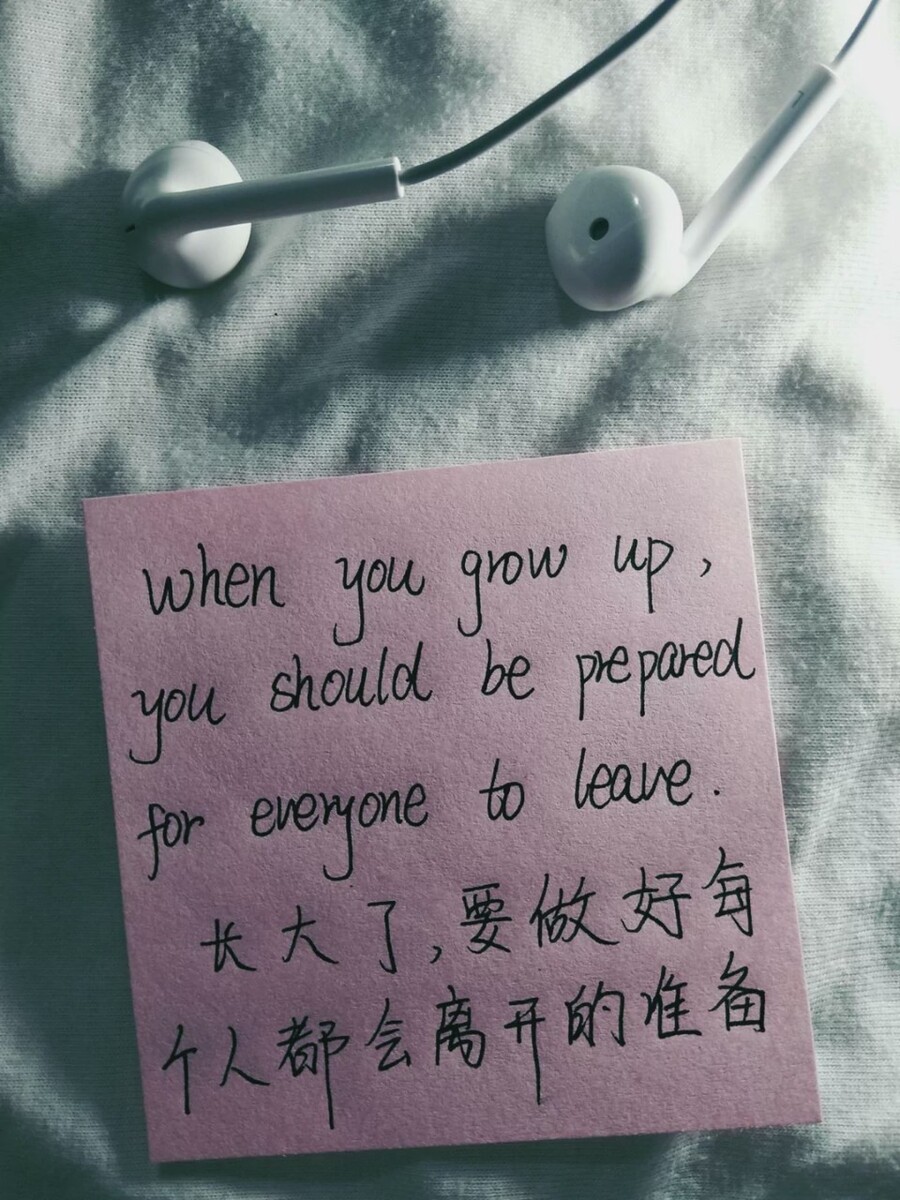 When you grow up,
you should be prepared
for everyone to leave.
长大了,要做好每
个人都会离开的准备